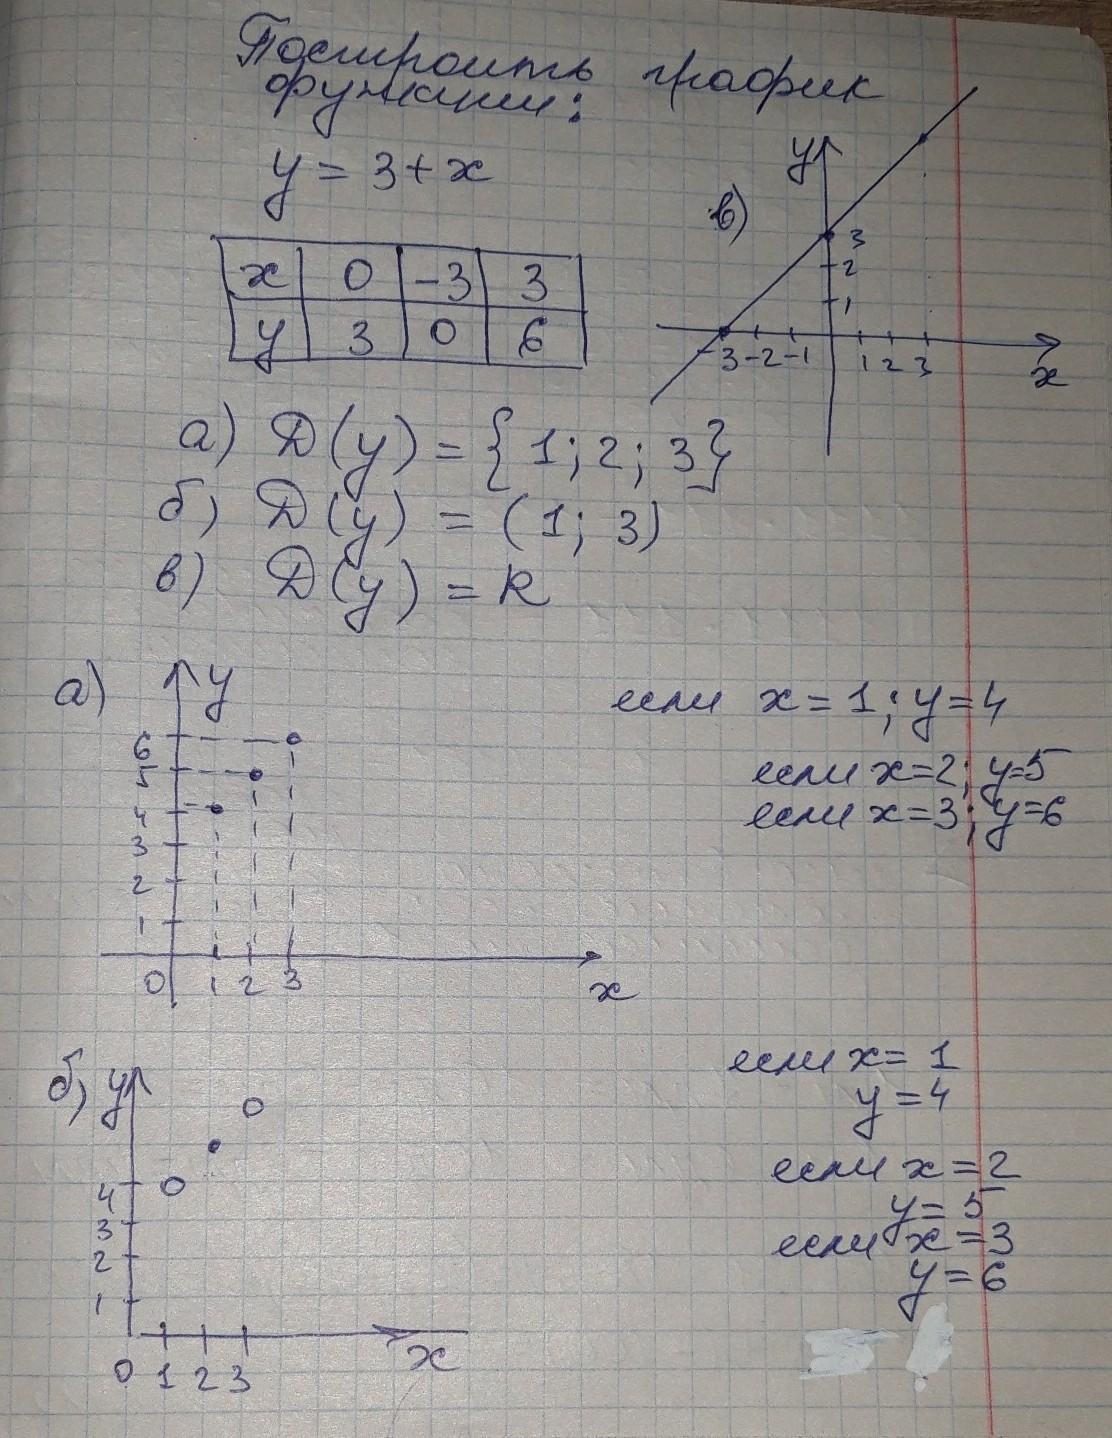 Построить график
функции:
y = 3 + x
x 0 -3 3
y 3 0 6
в)
y
3
2
1
-3 -2 -1 1 2 3
x
а) D(y) = {1; 2; 3}
б) D(y) = (1; 3)
в) D(y) = R
а)
y
6
5
4
3
2
1
0 1 2 3
x
если x = 1; y = 4
если x = 2; y = 5
если x = 3; y = 6
б)
y
4
3
2
1
0 1 2 3
x
если x = 1
y = 4
если x = 2
y = 5
если x = 3
y = 6